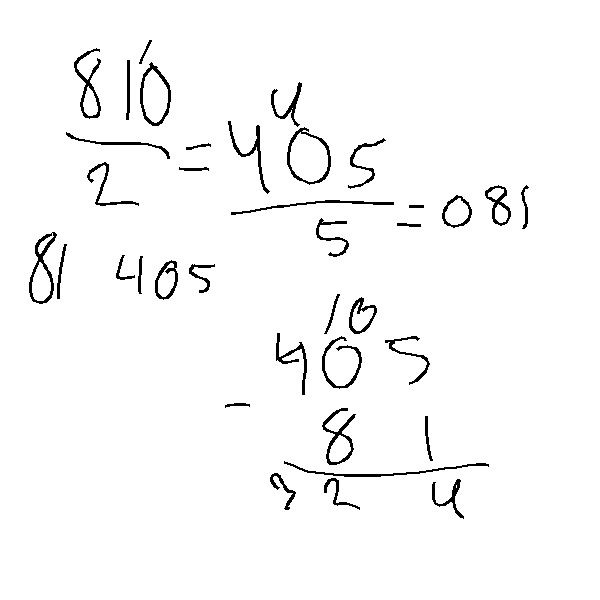 1
810 4
2 = 405
5 = 081
81 405
10
405
- 81
324